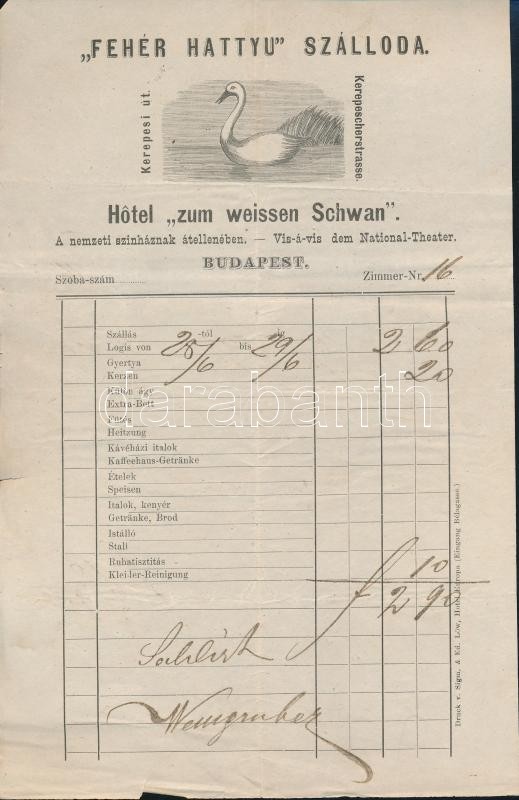 „FEHÉR HATTYU” SZÁLLODA.
Kerepesi út.
Kerepescherstrasse.
Hôtel „zum weissen Schwan”.
A nemzeti szinháznak átellenében. — Vis-á-vis dem National-Theater.
BUDAPEST.
Szoba-szám ........ Zimmer-Nr. 16
Szállás -tól -ig
Logis von 28/6 bis 29/6 2 60
Gyertya
Kerzen 20
Külön ágy
Extra-Bett
Fütés
Heitzung
Kávéházi italok
Kaffeehaus-Getränke
Ételek
Speisen
Italok, kenyér
Getränke, Brod
Istálló
Stall
Ruhatisztitás
Kleider-Reinigung 10
f 2 90
Saldirt
Weingruber
Druck v. Sigm. & Ed. Löw, Hotel Europa (Eingang Bélagasse.)
darabanth